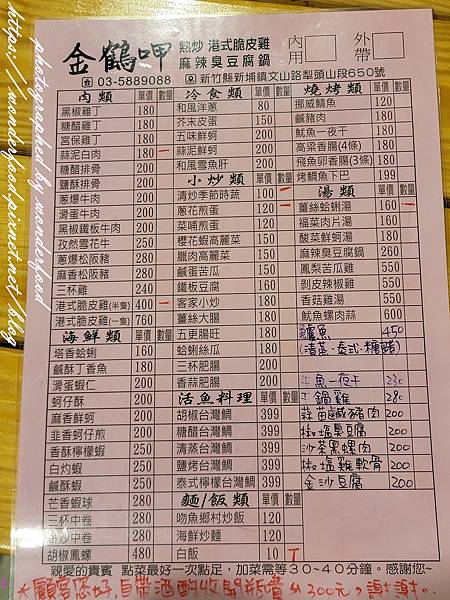 金鶴呷 熱炒 港式脆皮雞 麻辣臭豆腐鍋
內用 外帶
☎03-5889088 新竹縣新埔鎮文山路犁頭山段650號
肉類 單價 數量
黑椒雞丁 180
糖醋雞丁 180
宮保雞丁 180
蒜泥白肉 180
糖醋排骨 200
鹽酥排骨 200
蔥爆牛肉 200
滑蛋牛肉 200
黑椒鐵板牛肉 200
孜然雪花牛 250
蔥爆松阪豬 280
麻香松阪豬 280
三杯雞 240
港式脆皮雞(半隻) 400
港式脆皮雞(一隻) 760
海鮮類 單價 數量
塔香蛤蜊 160
鹹酥丁香魚 180
滑蛋蝦仁 200
蚵仔酥 200
麻香鮮蚵 200
韭香蚵仔煎 200
香酥檸檬蝦 250
白灼蝦 250
鹹酥蝦 250
芒香蝦球 280
三杯中卷 280
金沙中卷 280
胡椒鳳螺 480
冷食類 單價 數量
和風洋蔥 80
芥末皮蛋 150
五味鮮蚵 200
蒜泥鮮蚵 200
和風雪魚肝 200
小炒類 單價 數量
清炒季節時蔬 100
蔥花煎蛋 120
菜脯煎蛋 120
櫻花蝦高麗菜 150
臘肉高麗菜 150
鹹蛋苦瓜 150
鐵板豆腐 160
客家小炒 180
薑絲大腸 180
五更腸旺 180
蛤蜊絲瓜 180
三杯肥腸 200
香蒜肥腸 200
活魚料理 單價 數量
胡椒台灣鯛 399
糖醋台灣鯛 399
清蒸台灣鯛 399
鹽烤台灣鯛 399
泰式檸檬台灣鯛 399
麵/飯類 單價 數量
吻魚鄉村炒飯 120
海鮮炒麵 120
白飯 10
燒烤類 單價 數量
挪威鯖魚 120
鹹豬肉 180
魷魚一夜干 180
高粱香腸(4條) 180
飛魚卵香腸(3條) 180
烤鯛魚下巴 199
湯類 單價 數量
薑絲蛤蜊湯 160
福菜肉片湯 180
酸菜鮮蚵湯 180
麻辣臭豆腐鍋 260
鳳梨苦瓜雞 550
剝皮辣椒雞 550
香菇雞湯 550
魷魚螺肉蒜 600
鱸魚 450
(清蒸、泰式、糖醋)
魚一夜干 230
鍋雞 280
蒜苗鹹豬肉 200
椒塩臭豆腐 200
沙茶黑螺肉 200
椒塩雞軟骨 200
金沙豆腐 200
親愛的貴賓 點菜最好一次點足，加菜需等30~40分鐘。感謝您~
*顧客您好，自帶酒酌收開瓶費$300元，謝謝。
photographed by wonderfood
https://wonderfood.pixnet.net/blog